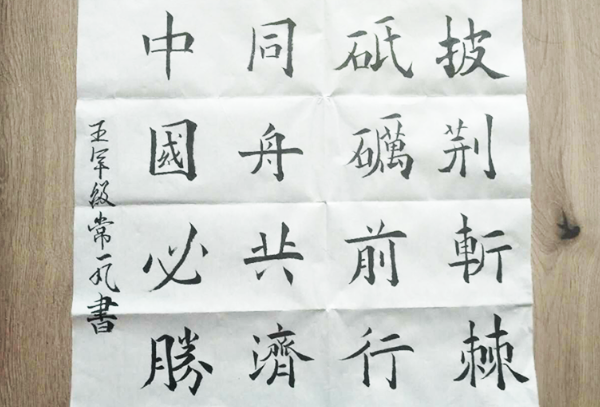 披荆斬棘
砥礪前行
同舟共濟
中國必勝
五年级常一凡書